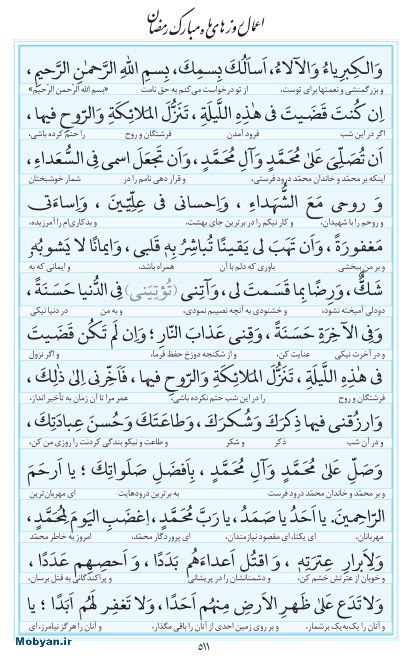 اعمال روزهای ماه مبارک رمضان
وَالْكِبْرِياءُ وَالْآلاءُ، اَسْاَلُكَ بِسْمِكَ، بِسْمِ اللهِ الرَّحْمٰنِ الرَّحيمِ،
و بزرگمنشی و نعمتها برای توست، از تو درخواست می‌کنم به حق نامت «بسم الله الرحمن الرحیم»
اِنْ كُنْتَ قَضَيْتَ فى هٰذِهِ اللَّيْلَةِ، تَنَزُّلَ الْمَلائِكَةِ وَالرّوحِ فيها،
اگر در این شب فرود آمدن فرشتگان و روح را حتم کرده باشی،
اَنْ تُصَلِّىَ عَلىٰ مُحَمَّدٍ وَآلِ مُحَمَّدٍ، وَاَنْ تَجْعَلَ اسْمى فِى السُّعَداءِ،
اینکه بر محمّد و خاندان محمّد درود فرستی، و قرار دهی نامم را در شمار خوشبختان
وَ رُوحى مَعَ الشُّهَداءِ، وَاِحْسانى فى عِلِّيّينَ، وَاِساءَتى
و روحم را با شهیدان، و کار نیکم را در برترین جای بهشت، و بدکاری‌ام را آمرزیده،
مَغْفُورَةً، وَاَنْ تَهَبَ لى يَقينًا تُباشِرُ بِهِ قَلْبى، وَايمانًا لا يَشُوبُهُ
و بر من ببخشی باوری که دلم با آن همراه باشد، و ایمانی که به
شَكٌّ، وَرِضًا بِما قَسَمْتَ لى، وَآتِنى (تُؤْتِيَنى) فِى الدُّنْيا حَسَنَةً،
دودلی آمیخته نشود، و خشنودی به آنچه نصیبم نمودی، و به من در دنیا نیکی
وَفِى الْآخِرَةِ حَسَنَةً، وَقِنى عَذابَ النّارِ؛ وَاِنْ لَمْ تَكُنْ قَضَيْتَ
و در آخرت نیکی عنایت کن، و از شکنجه دوزخ حفظ فرما، و اگر نزول
فى هٰذِهِ اللَّيْلَةِ، تَنَزُّلَ الْمَلائِكَةِ وَالرّوحِ فيها، فَاَخِّرْنى اِلىٰ ذٰلِكَ،
فرشتگان و روح را در این شب حتم نکرده باشی، عمر مرا تا آن زمان به تأخیر انداز،
وَارْزُقْنى فيها ذِكْرَكَ وَشُكْرَكَ، وَطاعَتَكَ وَحُسْنَ عِبادَتِكَ،
و در آن شب ذکر و شکر و طاعت و نیکو بندگی کردنت را روزی من کن،
وَصَلِّ عَلىٰ مُحَمَّدٍ وَآلِ مُحَمَّدٍ، بِاَفْضَلِ صَلَواتِكَ؛ يا اَرْحَمَ
و بر محمّد و خاندان محمّد درود فرست به برترین درودهایت ای مهربان‌ترین
الرّاحِمينَ. يا اَحَدُ يا صَمَدُ، يا رَبَّ مُحَمَّدٍ، اِغْضَبِ الْيَوْمَ لِمُحَمَّدٍ،
مهربانان. ای یکتا، ای مقصود نیازمندان، ای پروردگار محمّد، امروز به خاطر محمّد
وَلِاَبْرارِ عِتْرَتِهِ، وَ اقْتُلْ اَعْداءَهُمْ بَدَدًا، وَ اَحْصِهِمْ عَدَدًا،
و خوبان از عترتش خشم کن، و دشمنانشان را در پریشانی و پراکندگانی به قتل برسان،
وَلا تَدَعْ عَلىٰ ظَهْرِ الْاَرْضِ مِنْهُمْ اَحَدًا، وَلا تَغْفِرْ لَهُمْ اَبَدًا؛ يا
و آنان را یک‌به‌یک برشمار، و بر روی زمین احدی از آنان را باقی مگذار، و آنان را هرگز نیامرز، ای
۵۱۱
Mobyan.ir